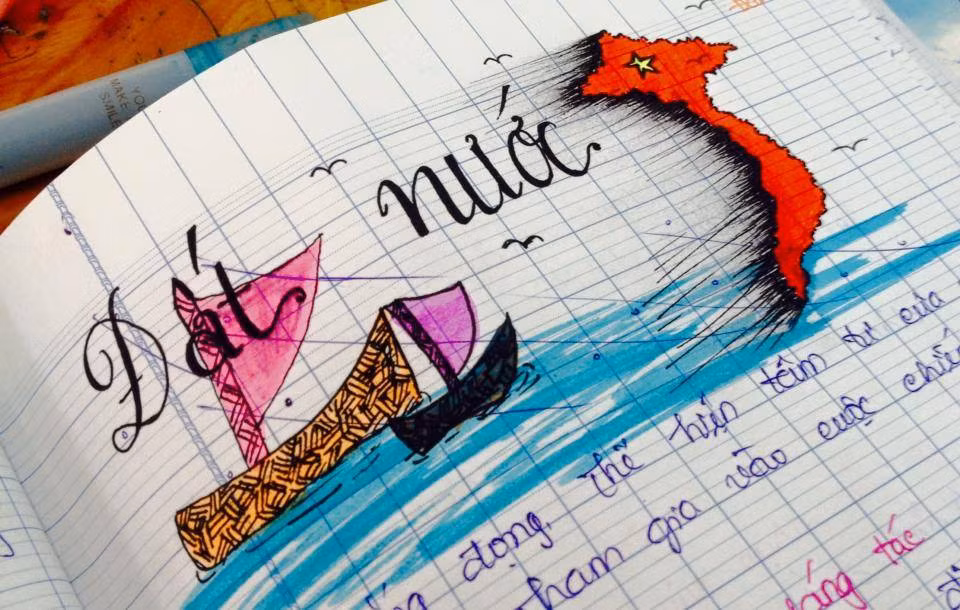 Đất nước
YOU
MAKE
SMILE
thể hiện tâm tư của
động
tham gia vào cuộc chiến
sáng tác